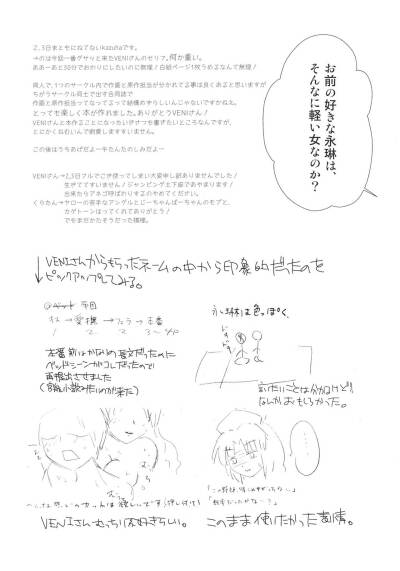 2、3日まともにねてないkazuhaです。
→のは今回一番グサっと来たVENIさんのセリフ。何か重い。
ああーあと30分でおわりにしたいのに無理!白紙ページ1枚うめるなんて無理!
同人で、1つのサークル内で作画と原作担当が分かれてる事は良くあると思いますが
ちがうサークル同士で出す合同誌で
作画と原作担当ってなってるって結構めずらしいんじゃないですかねえ。
とっても楽しく本が作れました。ありがとうVENIさん!
VENIさんと本作ることになったいきさつも書きたいところなんですが、
とにかくねむいんで割愛しますすいません。
この後はうちあげだよー牛たんたのしみだよー
VENIさん→2、3日フルでこき使ってしまい大変申し訳ありませんでした!
生きててすいません!ジャンピング土下座であやまります!
出来たらアネゴ呼ばわりするのやめてください。
くりかん→ヤローの苦手なアングルとじーちゃんばーちゃんのモブと、
カゲトーンはってくれてありがとう!
でもまだかたそうだった模様。
お前の好きな永琳は、
そんなに軽い女なのか?
VENIさんからもらったネームの中から印象的だったのを
ピックアップしてみる。
本番前はかなりの長文だったのに
ベッドシーンがコレだったので
再提出させました
永琳は色っぽく。
言いたいことは分かるけど
なんかおもしろかった。
VENIさんむっちり大好きらしい。
このまま使いたかった表情。